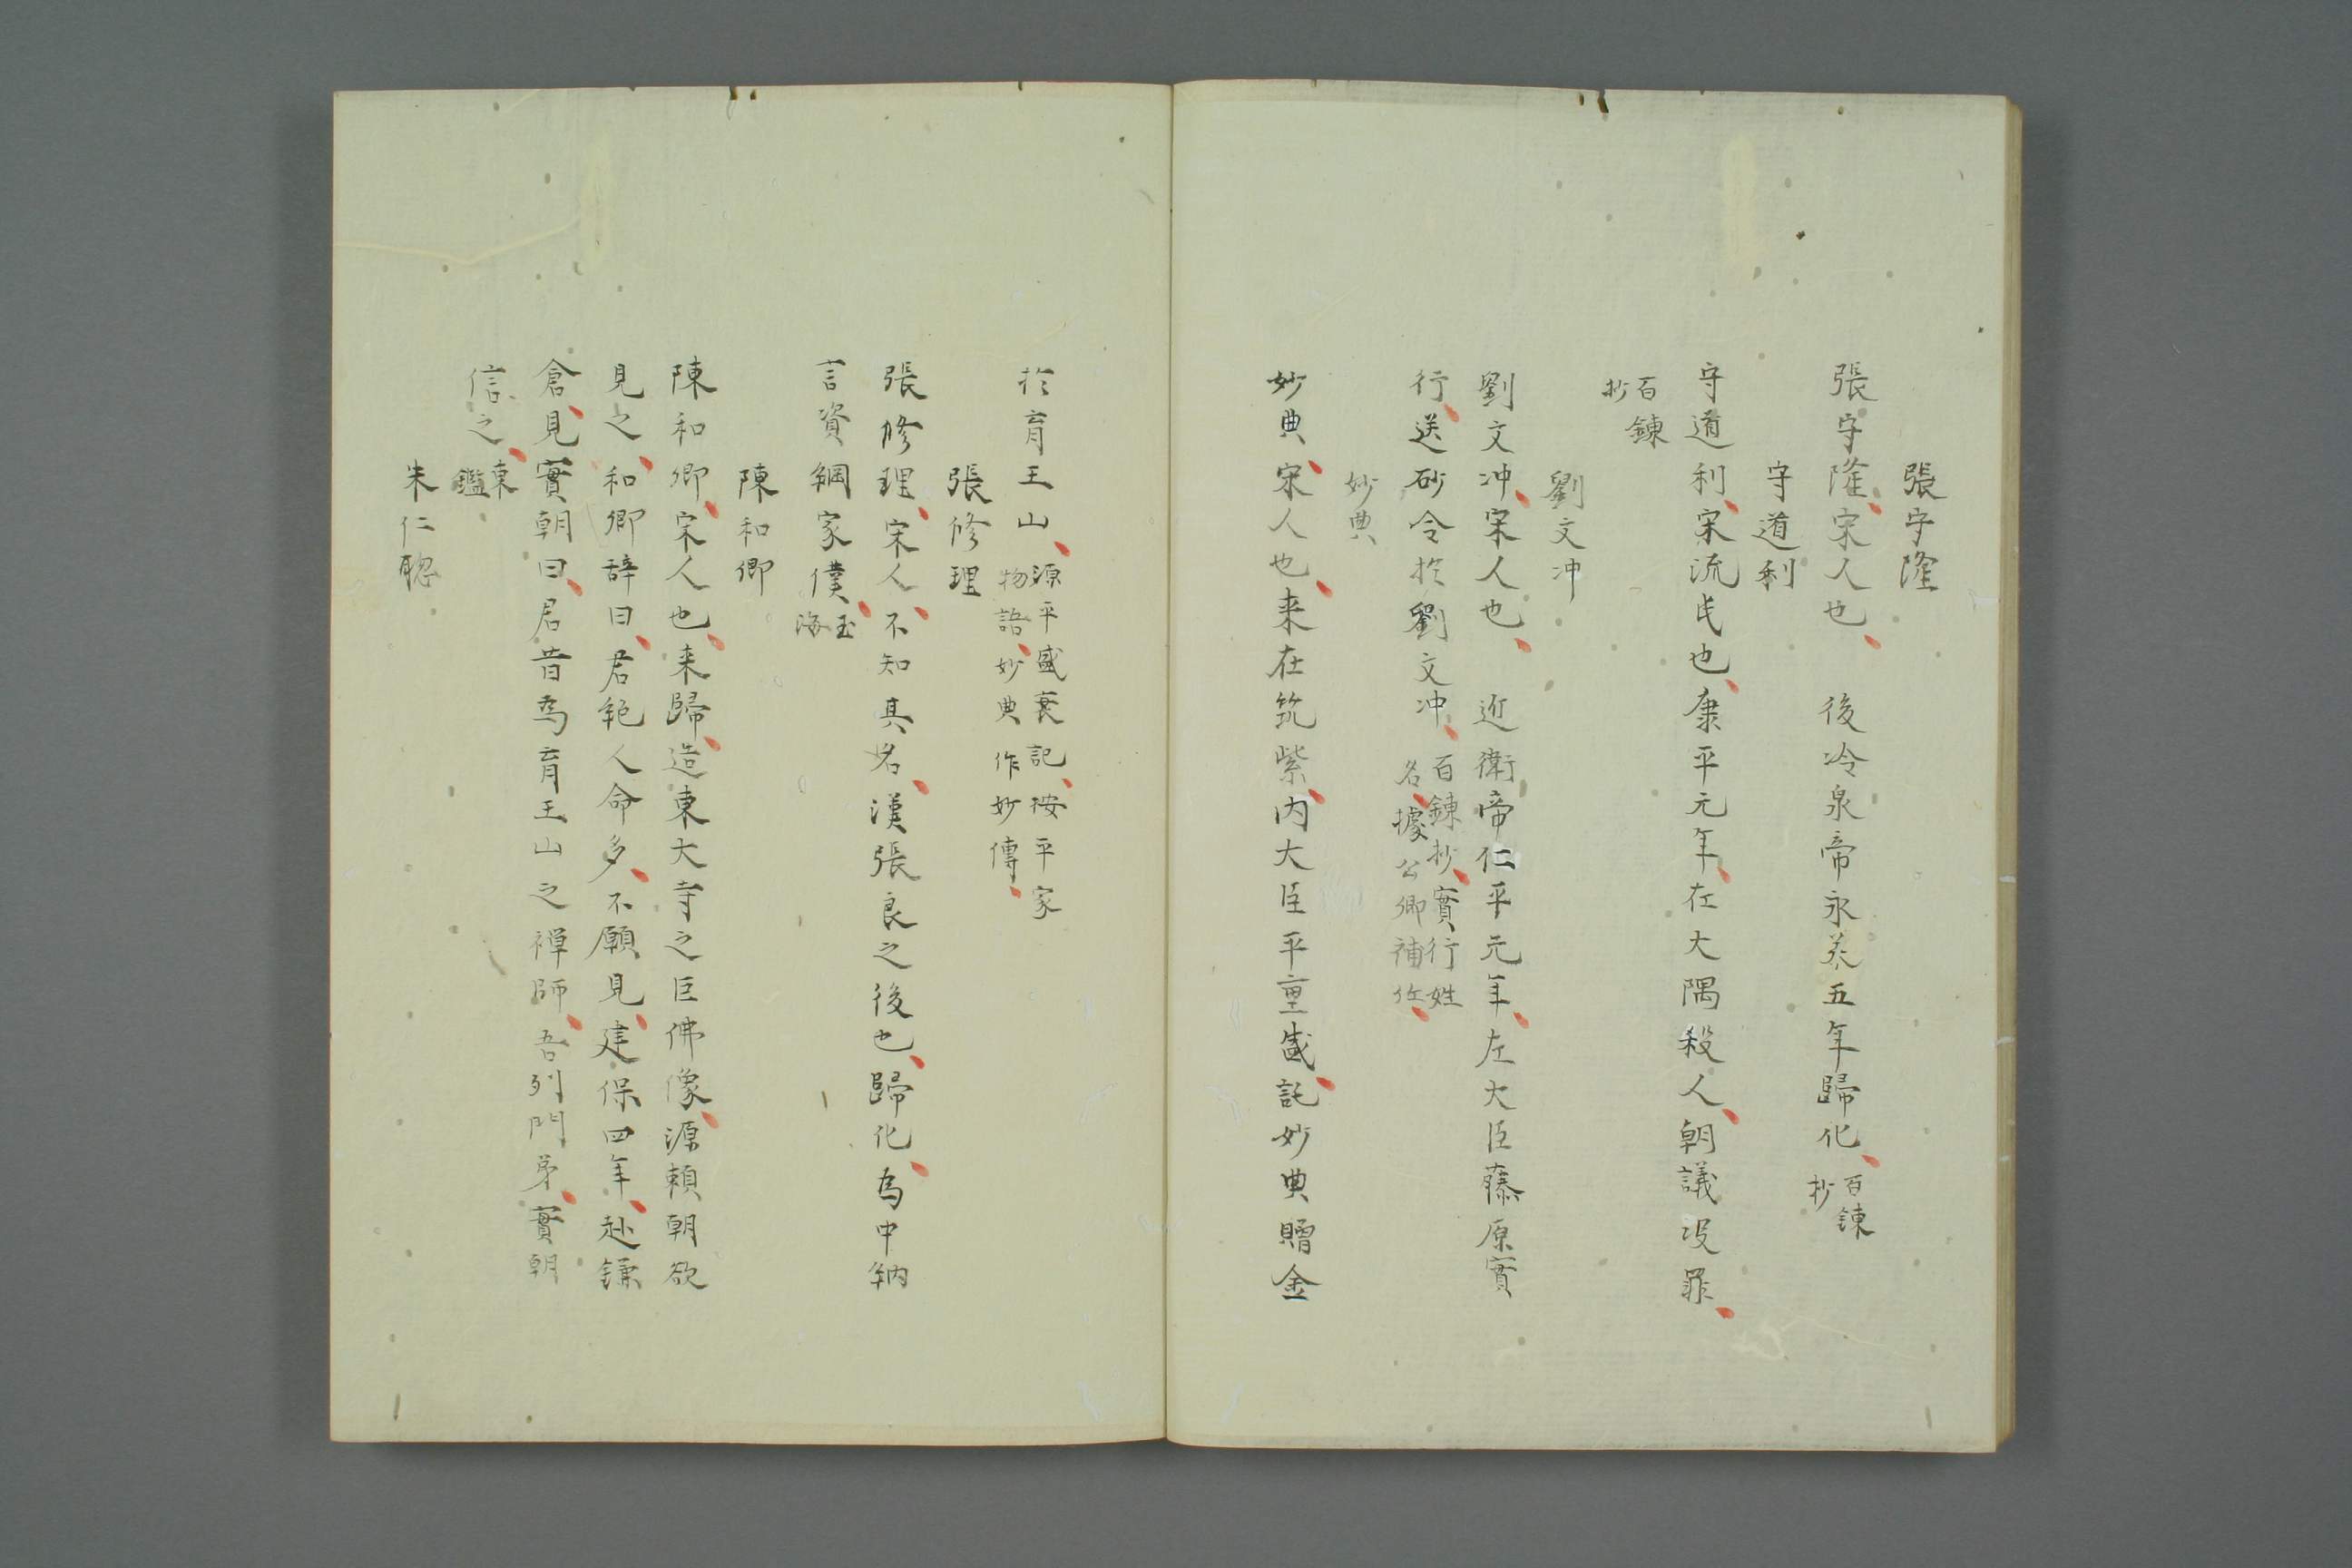 張守隆
張守隆宋人也　後冷泉帝永羙五年歸化百鍊抄
守道利
守道利宋流氏也康平元年在大隅殺人朝議没罪
百鍊抄
劉文冲
劉文冲宋人也　近衛帝仁平元年左大臣藤原實
行送砂令於劉文冲百鍊抄實行姓名據公卿補任
妙典
妙典宋人也来在筑紫内大臣平重盛託妙典贈金
於育王山源平盛衰記按平家物語妙典作妙傳
張修理
張修理宋人不知其名漢張良之後也歸化為中納
言資綱家僕玉海
陳和卿
陳和卿宋人也来歸造東大寺之巨佛像源頼朝欲
見之和卿辞曰君範人命多不願見建保四年赴鎌
倉見實朝曰君昔為育王山之禅師吾列門弟實朝
信之東鑑
朱仁聡